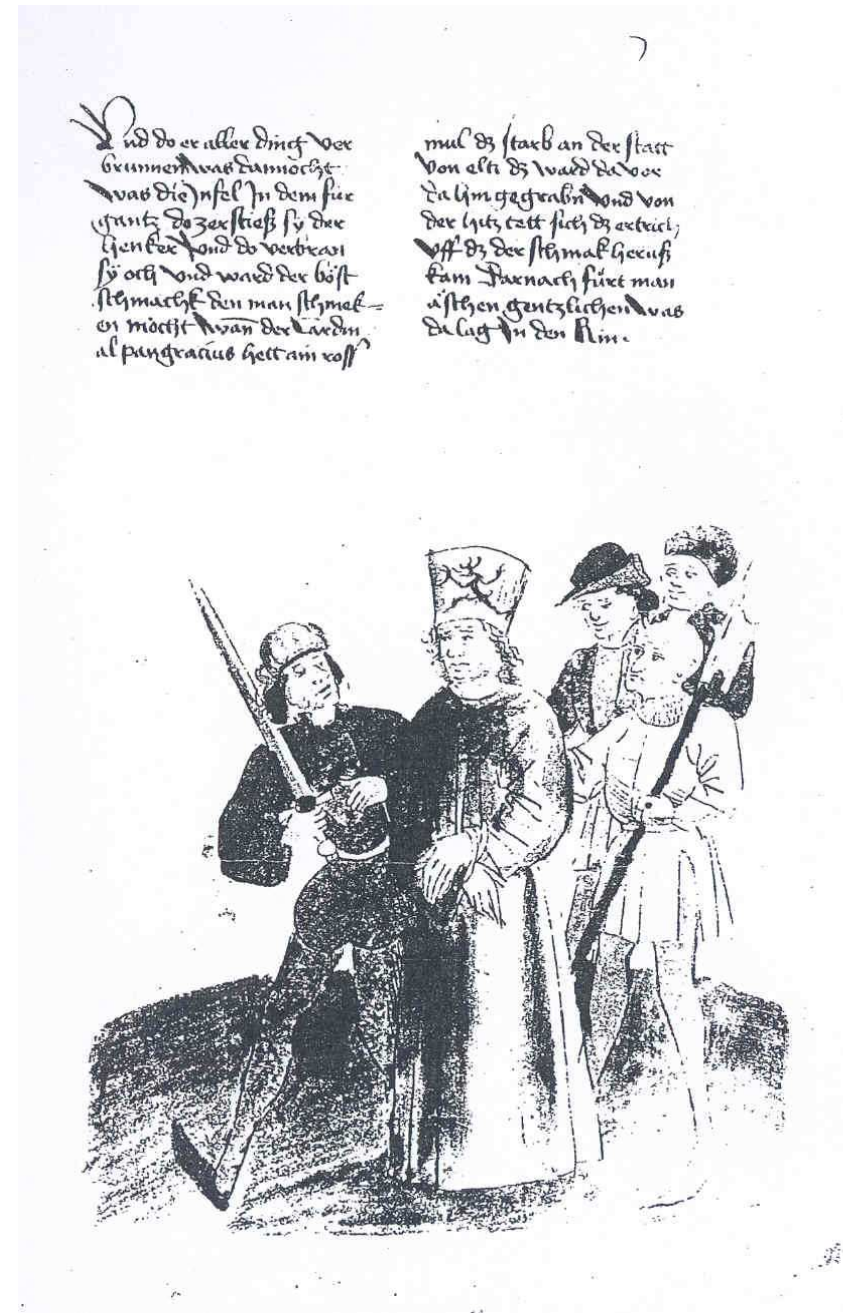 Und do er aller ding ver
brunnen was dannocht
was die Infel In dem für
gantz do zerstieß sy der
henker Vnd do verbran
sy och vnd ward der böst
schmachk den man schmek=
en möcht Wañ der Cardin
al pangracius hett ain ross
mul dz starb an der statt
von elti dz ward da vor
da hin gegrabñ Vnd von
der hitz tett sich dz ertrich
vff dz der schmak heruß
kam Darnach fürt man
äschen gentzlichen Was
da lag In den Rin.